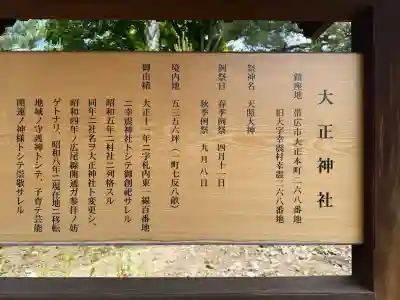 大正神社
鎮座地　帯広市大正本町二六八番地
旧大字幸震村幸震二六八番地
祭神名　天照大神
例祭日　春季例祭　四月十一日
秋季例祭　九月八日
境内地　五三五六坪（一町七反八畝）
御由緒　大正十一年二字札内東一線百番地
二幸震神社トシテ御創祀サレル
昭和五年二村社二列格スル
同年二社名ヲ大正神社ト変更シ、
昭和四年ノ広尾線開通ガ参拝ノ妨
ゲトナリ、昭和八年二現在地二移転
地域ノ守護神トシテ、子育テ芸能
開運ノ神様トシテ崇敬サレル